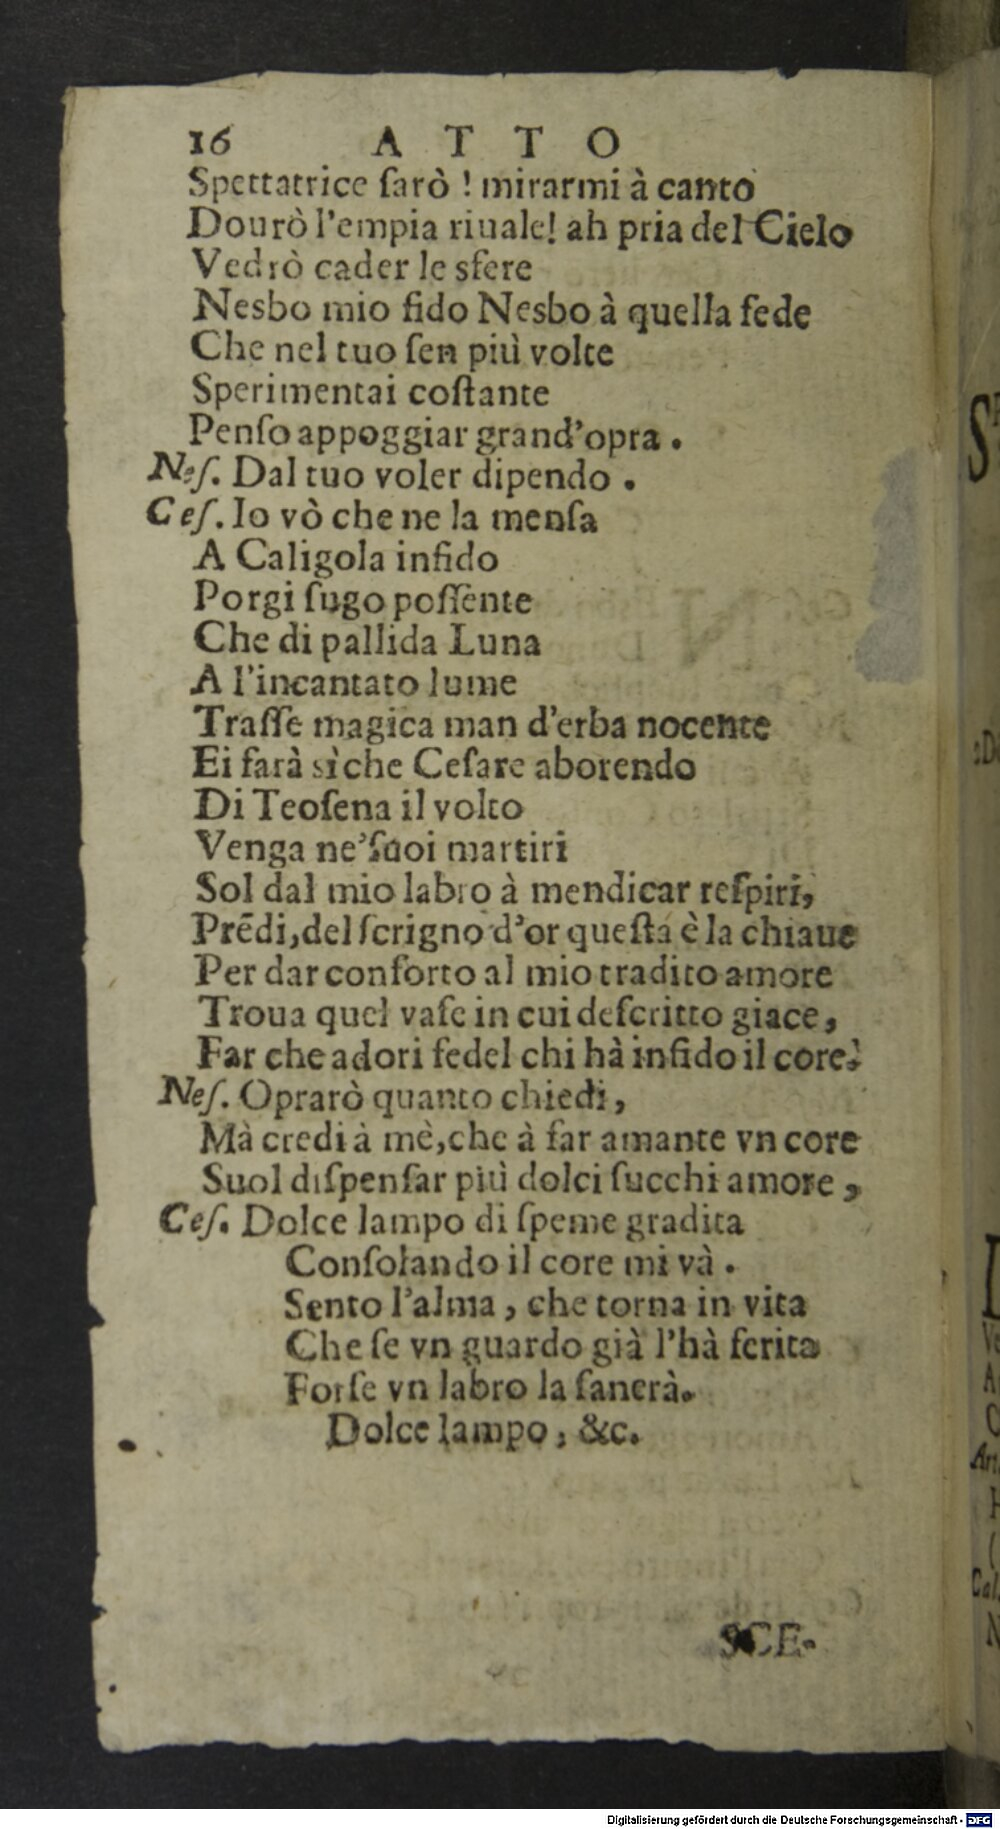 16 ATTO
Spettatrice ſarò ! mirarmi à canto
Dourò l'empia riuale! ah pria del Cielo
Vedrò cader le sfere
Nesbo mio fido Nesbo à quella fede
Che nel tuo ſen più volte
Sperimentai coſtante
Penſo appoggiar grand'opra .
Neſ. Dal tuo voler dipendo .
Ceſ. Io vò che ne la menſa
A Caligola infido
Porgi ſugo poſſente
Che di pallida Luna
A l'incantato lume
Traſſe magica man d'erba nocente
Ei farà sì che Ceſare aborendo
Di Teoſena il volto
Venga ne' ſuoi martiri
Sol dal mio labro à mendicar reſpiri,
Prēdi, del ſcrigno d'or queſta è la chiaue
Per dar conforto al mio tradito amore
Troua quel vaſe in cui deſcritto giace,
Far che adori fedel chi hà infido il core.
Neſ. Oprarò quanto chiedi,
Mà credi à mè, che à far amante vn core
Suol diſpenſar più dolci ſucchi amore,
Ceſ. Dolce lampo di ſpeme gradita
Conſolando il core mi và .
Sento l'alma, che torna in vita
Che ſe vn guardo già l'hà ferita
Forſe vn labro la ſanerà.
Dolce lampo, &c.
SCE-
Digitalisierung gefördert durch die Deutsche Forschungsgemeinschaft - DFG